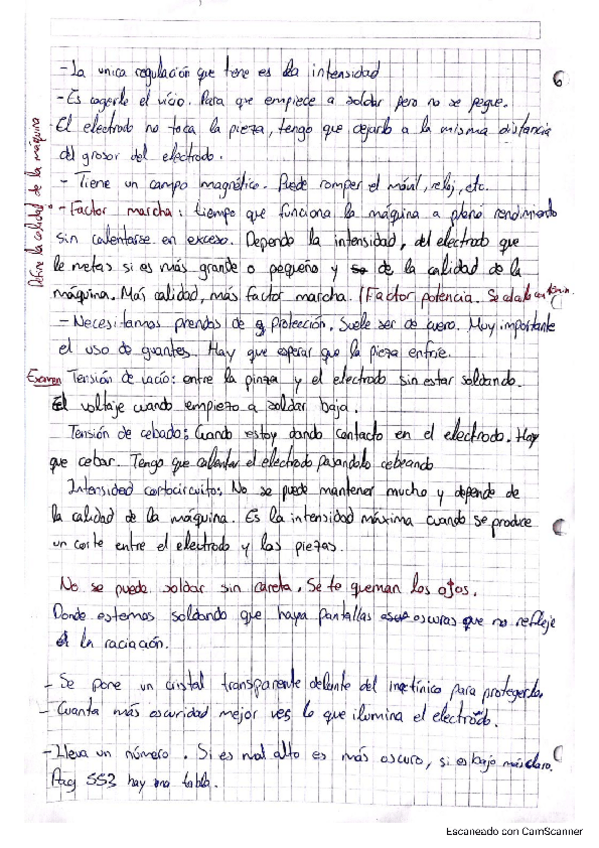 - La unica regulación que tiene es la intensidad
6
- Es cogerle el vicio. Para que empiece a soldar pero no se pegue.
El electrodo no toca la pieza, tengo que dejarlo a la misma distancia
del grosor del electrodo.
- Tiene un campo magnético. Puede romper el móvil, reloj, etc.
Define la calidad de la máquina
- Factor marcha: tiempo que funciona la máquina a pleno rendimiento
sin calentarse en exceso. Depende la intensidad, del electrodo que
le metas si es más grande o pequeño y de la calidad de la
máquina. Más calidad, más factor marcha. (Factor potencia.
- Necesitamos prendas de protección. Suele ser de cuero. Muy importante
el uso de guantes. Hay que esperar que la pieza enfríe.
Examen Tensión de vacío: entre la pinza y el electrodo sin estar soldando.
El voltaje cuando empiezo a soldar baja.
Tensión de cebado: Cuando estoy dando contacto en el electrodo. Hay
que cebar. Tengo que calentar el electrodo pasandolo cebeando
Intensidad cortocircuito: No se puede mantener mucho y depende de
la calidad de la máquina. Es la intensidad máxima cuando se produce
un corte entre el electrodo y las piezas.
No se puede soldar sin careta. Se te queman los ojos.
Donde estemos soldando que haya pantallas oscuras que no refleje
la raciación.
- Se pone un cristal transparente delante del inactínico para protegerlo.
- Cuanta más oscuridad mejor ves lo que ilumina el electrodo.
- Lleva un número. Si es mal alto es más oscuro, si es bajo más claro.
Pag 553 hay una tabla.
Escaneado con CamScanner